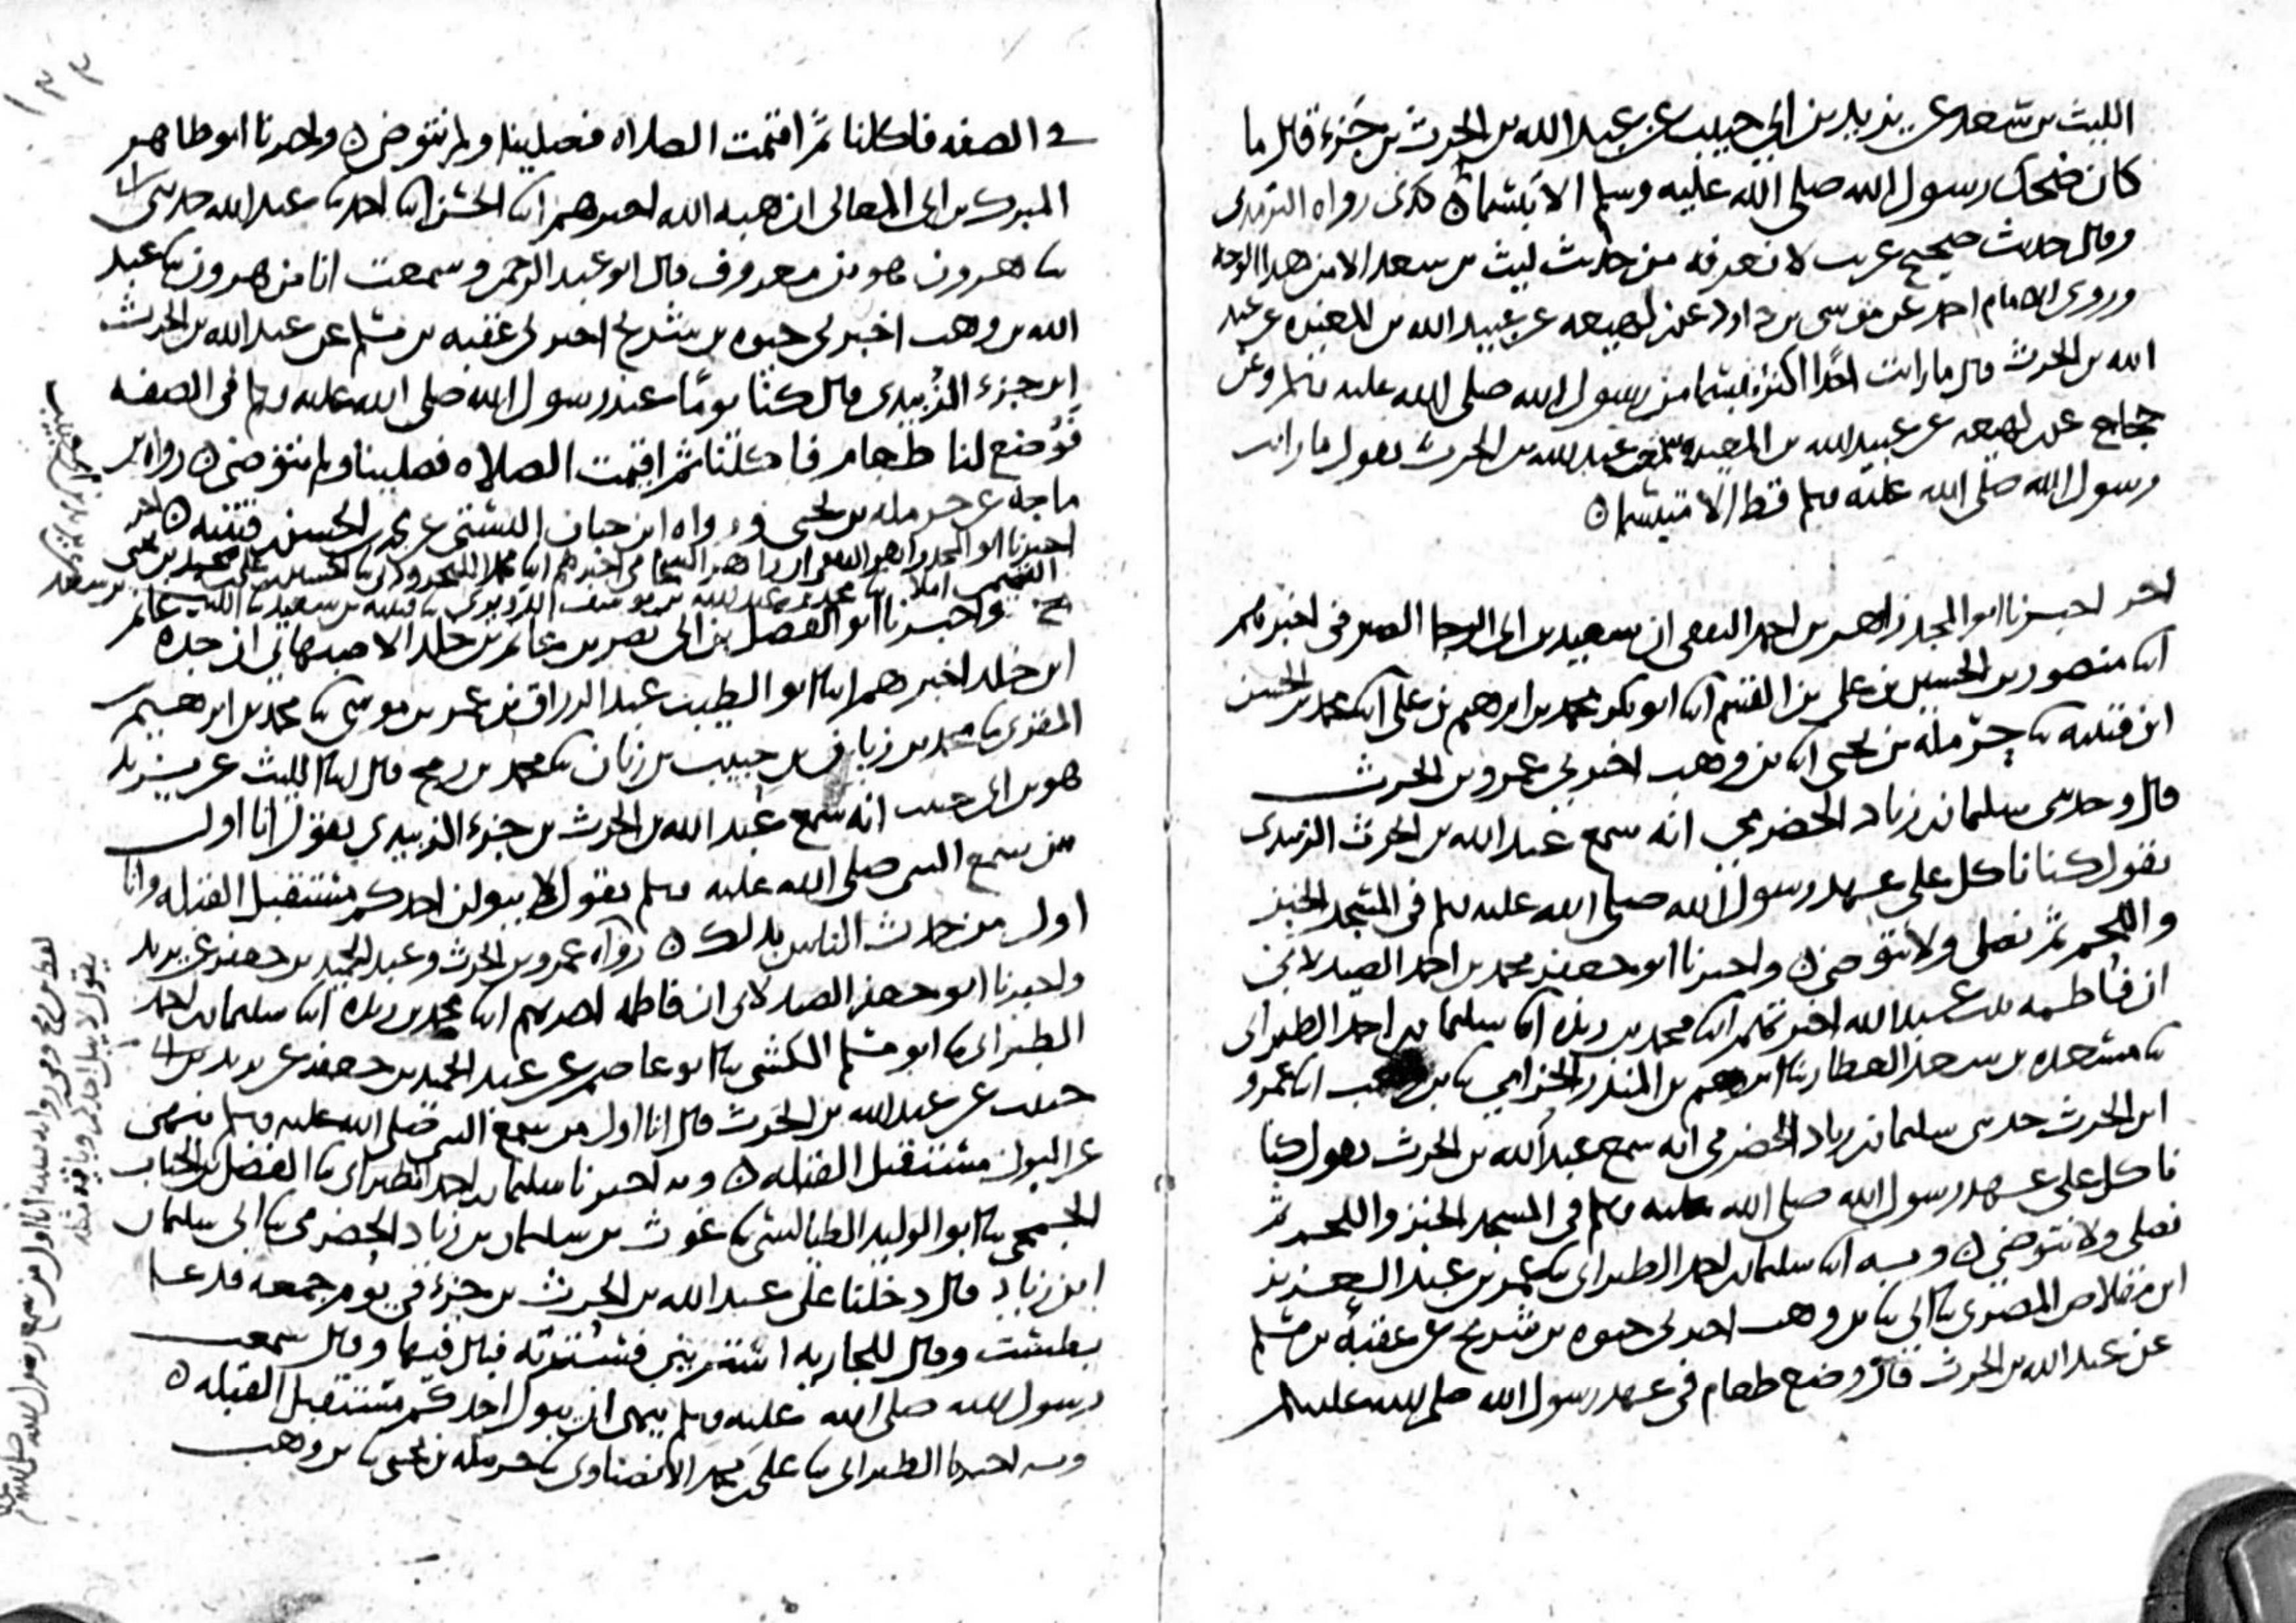 الليث بن سعد عن يزيد بن أبي حبيب عن عبد الله بن الحرث بن جزء قال ما
كان ضحك رسول الله صلى الله عليه وسلم الا تبسما كذى رواه الترمذي
وقال حديث صحيح غريب لا نعرفه من حديث ليث بن سعد الا من هذا الوجه
وروى الامام احمد عن موسى بن داود عن لهيعه عن عبيد الله بن المغيره عن عبد
الله بن الحرث قال ما رايت احدا اكثر تبسما من رسول الله صلى الله عليه وسلم وعن
حجاج عن لهيعه عن عبيد الله بن المغيره سمعت عبد الله بن الحرث يقول ما رايت
رسول الله صلى الله عليه وسلم قط الا متبسما
اخر اخبرنا ابو المجد زاهر بن احمد الثقفي ان سعيد بن ابي الرجا الصيرفي اخبرهم
ابنا منصور بن الحسين بن علي بن القسم ابنا ابو بكر محمد بن ابرهيم بن علي ابنا محمد بن الحسن
ابن قتيبه ثنا حرمله بن يحيى ابنا بن وهب اخبرني عمرو بن الحرث
قال وحدثني سليمان بن زياد الحضرمي انه سمع عبد الله بن الحرث الزبيدي
يقول كنا ناكل على عهد رسول الله صلى الله عليه وسلم في المسجد الخبز
واللحم ثم نصلي ولا نتوضى واخبرنا ابو جعفر محمد بن احمد الصيدلاني
ان فاطمه بنت عبد الله اخبرتهم ابنا محمد بن ريذه ابنا سليمان بن احمد الطبراني
ثنا مسعده بن سعد العطار ثنا ابرهيم بن المنذر الحزامي ثنا بن وهب ابنا عمرو
ابن الحرث حدثني سليمان بن زياد الحضرمي انه سمع عبد الله بن الحرث يقول كنا
ناكل على عهد رسول الله صلى الله عليه وسلم في المسجد الخبز واللحم ثم
نصلي ولا نتوضى وبه ابنا سليمان بن احمد الطبراني ثنا عمر بن عبد العزيز
ابن مقلاص المصري ثنا ابي ثنا بن وهب اخبرني حيوه بن شريح عن عقبه بن مسلم
عن عبد الله بن الحرث قال وضع طعام في عهد رسول الله صلى الله عليه وسلم
في الصفه فاكلنا ثم اقيمت الصلاه فصلينا ولم نتوضى واخبرنا ابو طاهر
المبرك بن ابي المعالي ان هبه الله اخبرهم ابنا الحسن ابنا احمد ثنا عبد الله حدثني ابي
ثنا هرون هو بن معروف قال ابو عبد الرحمن وسمعت انا من هرون ثنا عبد
الله بن وهب اخبرني حيوه بن شريح اخبرني عقبه بن مسلم عن عبد الله بن الحرث
ابن جزء الزبيدي قال كنا يوما عند رسول الله صلى الله عليه وسلم في الصفه
فوضع لنا طعام فاكلنا ثم اقيمت الصلاه فصلينا ولم نتوضى رواه بن
ماجه عن حرمله بن يحيى ورواه ابن حبان البستي عن محمد بن الحسن بن قتيبه اخر
محمد بن عبد الله بن يوسف الدويري ثنا قتيبه بن سعيد ثنا الليث بن سعد
ح واخبرنا ابو الفضل بن ابي نصر بن غانم بن خلد الاصبهاني ان جده غانم
ابن خلد اخبرهم ابنا ابو الطيب عبد الرزاق بن عمر بن موسى ثنا محمد بن ابرهيم
المقري ثنا محمد بن زبان بن حبيب بن زبان ثنا محمد بن رمح قال ابنا الليث عن يزيد
هو بن ابي حبيب انه سمع عبد الله بن الحرث بن جزء الزبيدي يقول انا اول
من سمع النبي صلى الله عليه وسلم يقول لا يبولن احدكم مستقبل القبله وانا
اول من حدث الناس بذلك رواه عمرو بن الحرث وعبد الحميد بن جعفر عن يزيد
واخبرنا ابو جعفر الصيدلاني ان فاطمه اخبرتهم ابنا محمد بن ريذه ابنا سليمان بن احمد
الطبراني ثنا ابو مسلم الكشي ثنا ابو عاصم عن عبد الحميد بن جعفر عن يزيد بن ابي
حبيب عن عبد الله بن الحرث قال انا اول من سمع النبي صلى الله عليه وسلم ينهى
عن البول مستقبل القبله وبه اخبرنا سليمان بن احمد الطبراني ثنا الفضل بن الحباب
الجمحي ثنا ابو الوليد الطيالسي ثنا غوث بن سليمان بن زياد الحضرمي ثنا ابي سليمان
ابن زياد قال دخلنا على عبد الله بن الحرث بن جزء في يوم جمعه فدعا
بطست وقال للجاريه استريني فسترته فبال فيها وقال سمعت
رسول الله صلى الله عليه وسلم ينهى ان يبول احدكم مستقبل القبله
وبه اخبرنا الطبراني ثنا علي بن محمد الانصناوي ثنا حرمله بن يحيى ثنا بن وهب